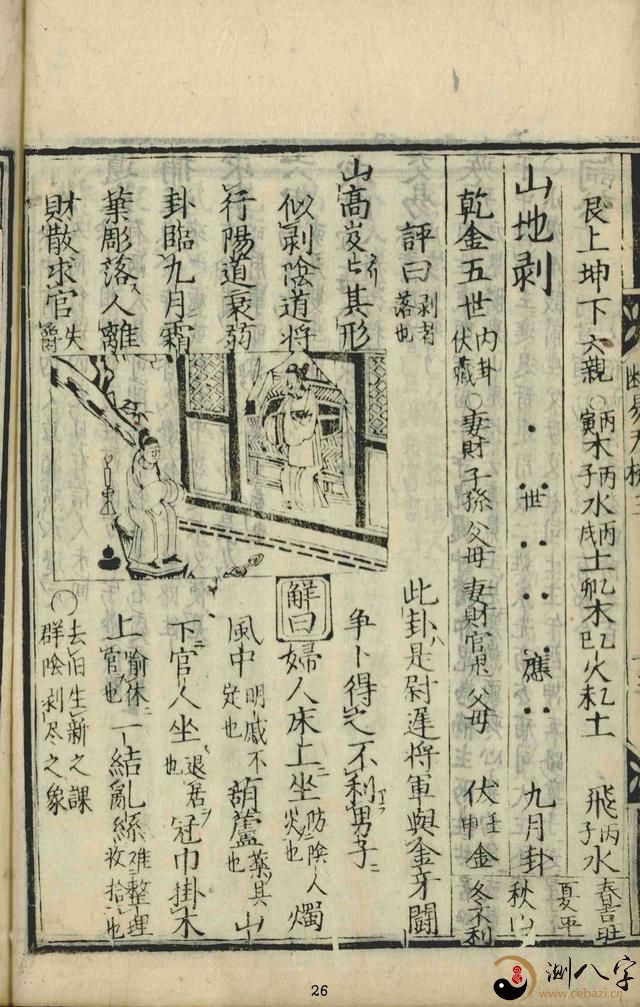 艮上坤下 六親 ○丙寅木 丙子水 丙戌土 乙卯木 乙巳火 乙未土 飛丙子水 春吉旺 夏平
山地剥 世 應 九月卦 秋
乾金五世 内卦伏藏 ○妻財 子孫 父母 妻財 官鬼 父母 伏壬申金 冬不利
評曰 剥者落也
山高岌 其形
似剥陰道將
行陽道衰弱
卦臨九月霜
葉彫落人離
財散求官失爵
此卦是尉遲將軍與金牙鬭
争卜得之不利男子
解曰 婦人床上坐 防陰人灾也 燭
風中 明 不定也 葫蘆 藥具也 山
下官人坐 退居也 冠巾掛木
上 喻休官也 一結亂絲 難整理收拾也
○去旧生新之課
群陰剥尽之象
26
測八字
www.cebazi.cn